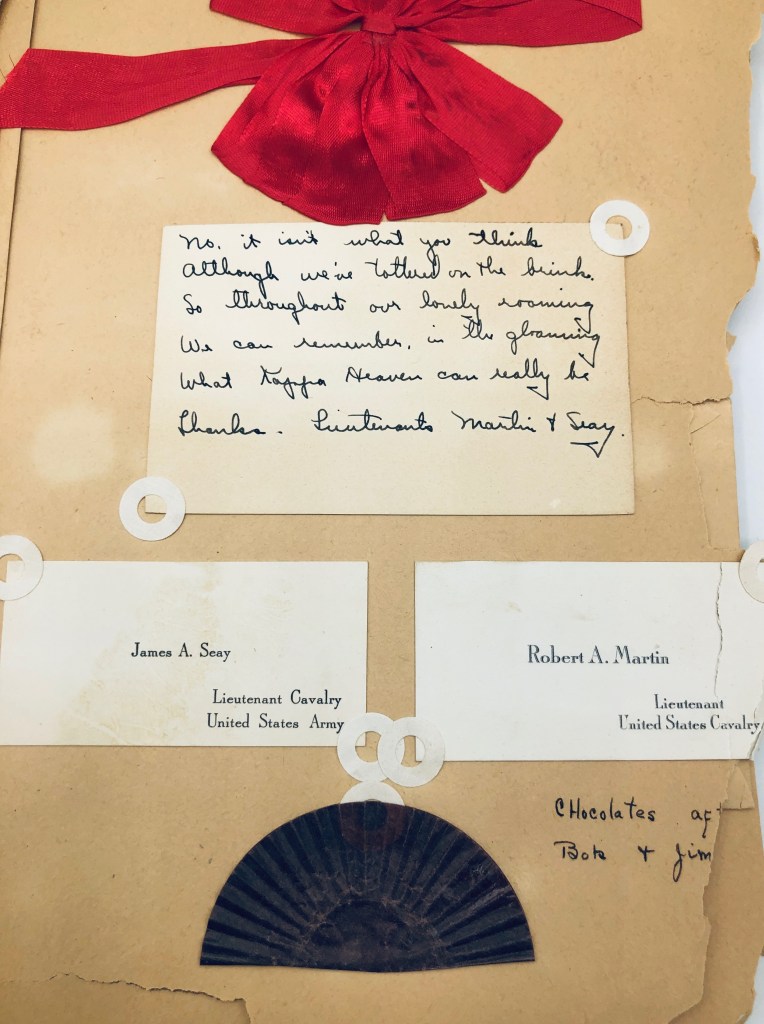 No, it isn't what you think
Although we've tottered on the brink.
So throughout our lonely roaming
We can remember, in the gloaming
What Kappa Heaven can really be
Thanks. Lieutenants Martin & Seay.
James A. Seay
Lieutenant Cavalry
United States Army
Robert A. Martin
Lieutenant
United States Cavalry
CHocolates
Bob & Jim